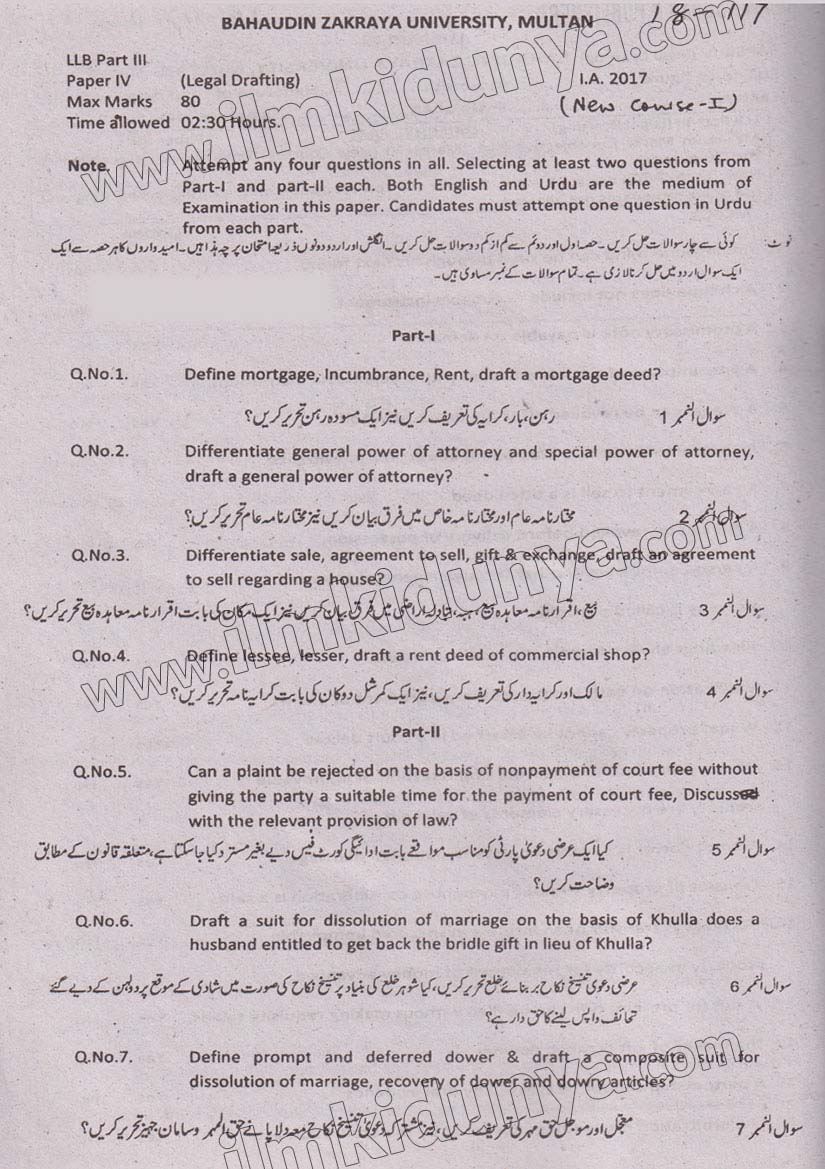 BAHAUDIN ZAKRAYA UNIVERSITY, MULTAN
LLB Part III
Paper IV (Legal Drafting) I.A. 2017
Max Marks 80 (New Course-I)
Time allowed 02:30 Hours.
Note. Attempt any four questions in all. Selecting at least two questions from
Part-I and part-II each. Both English and Urdu are the medium of
Examination in this paper. Candidates must attempt one question in Urdu
from each part.
نوٹ: کوئی سے چار سوالات حل کریں۔ حصہ اول اور دوئم سے کم از کم دو سوالات حل کریں۔ انگلش اور اردو دونوں ذریعہ امتحان پرچہ ہذا ہیں۔ امیدواروں کا ہر حصہ سے ایک
ایک سوال اردو میں حل کرنا لازی ہے۔ تمام سوالات کے نمبر مساوی ہیں۔
Part-I
Q.No.1. Define mortgage, Incumbrance, Rent, draft a mortgage deed?
سوال النمبر 1 رہن، بار، کرایہ کی تعریف کریں نیز ایک مسودہ رہن تحریر کریں؟
Q.No.2. Differentiate general power of attorney and special power of attorney,
draft a general power of attorney?
سوال النمبر 2 مختار نامہ عام اور مختار نامہ خاص میں فرق بیان کریں نیز مختار نامہ عام تحریر کریں؟
Q.No.3. Differentiate sale, agreement to sell, gift & exchange, draft an agreement
to sell regarding a house?
سوال النمبر 3 بیع، اقرار نامہ معاہدہ بیع، ہبہ، تبادلہ اراضی میں فرق بیان کریں نیز ایک مکان کی بابت اقرار نامہ معاہدہ بیع تحریر کریں؟
Q.No.4. Define lessee, lesser, draft a rent deed of commercial shop?
سوال النمبر 4 مالک اور کرایہ دار کی تعریف کریں، نیز ایک کمرشل دوکان کی بابت کرایہ نامہ تحریر کریں؟
Part-II
Q.No.5. Can a plaint be rejected on the basis of nonpayment of court fee without
giving the party a suitable time for the payment of court fee, Discussed
with the relevant provision of law?
سوال النمبر 5 کیا ایک عرضی دعویٰ پارٹی کو مناسب مواقعے بابت ادائیگی کورٹ فیس دیے بغیر مسترد کیا جا سکتا ہے، متعلقہ قانون کے مطابق
وضاحت کریں؟
Q.No.6. Draft a suit for dissolution of marriage on the basis of Khulla does a
husband entitled to get back the bridle gift in lieu of Khulla?
سوال النمبر 6 عرضی دعویٰ تنسیخ نکاح بر بنائے خلع تحریر کریں، کیا شوہر خلع کی بنیاد پر تنسیخ نکاح کی صورت میں شادی کے موقع پر دولہن کے دیے گئے
تحائف واپس لینے کا حق دار ہے؟
Q.No.7. Define prompt and deferred dower & draft a composite suit for
dissolution of marriage, recovery of dower and dowry articles?
سوال النمبر 7 معجل اور موجل حق مہر کی تعریف کریں، نیز مشترکہ دعویٰ تنسیخ نکاح معہ دلا پانے حق المہر و سامان جہیز تحریر کریں؟
www.ilmkidunya.com
www.ilmkidunya.com
ilmkidunya.com